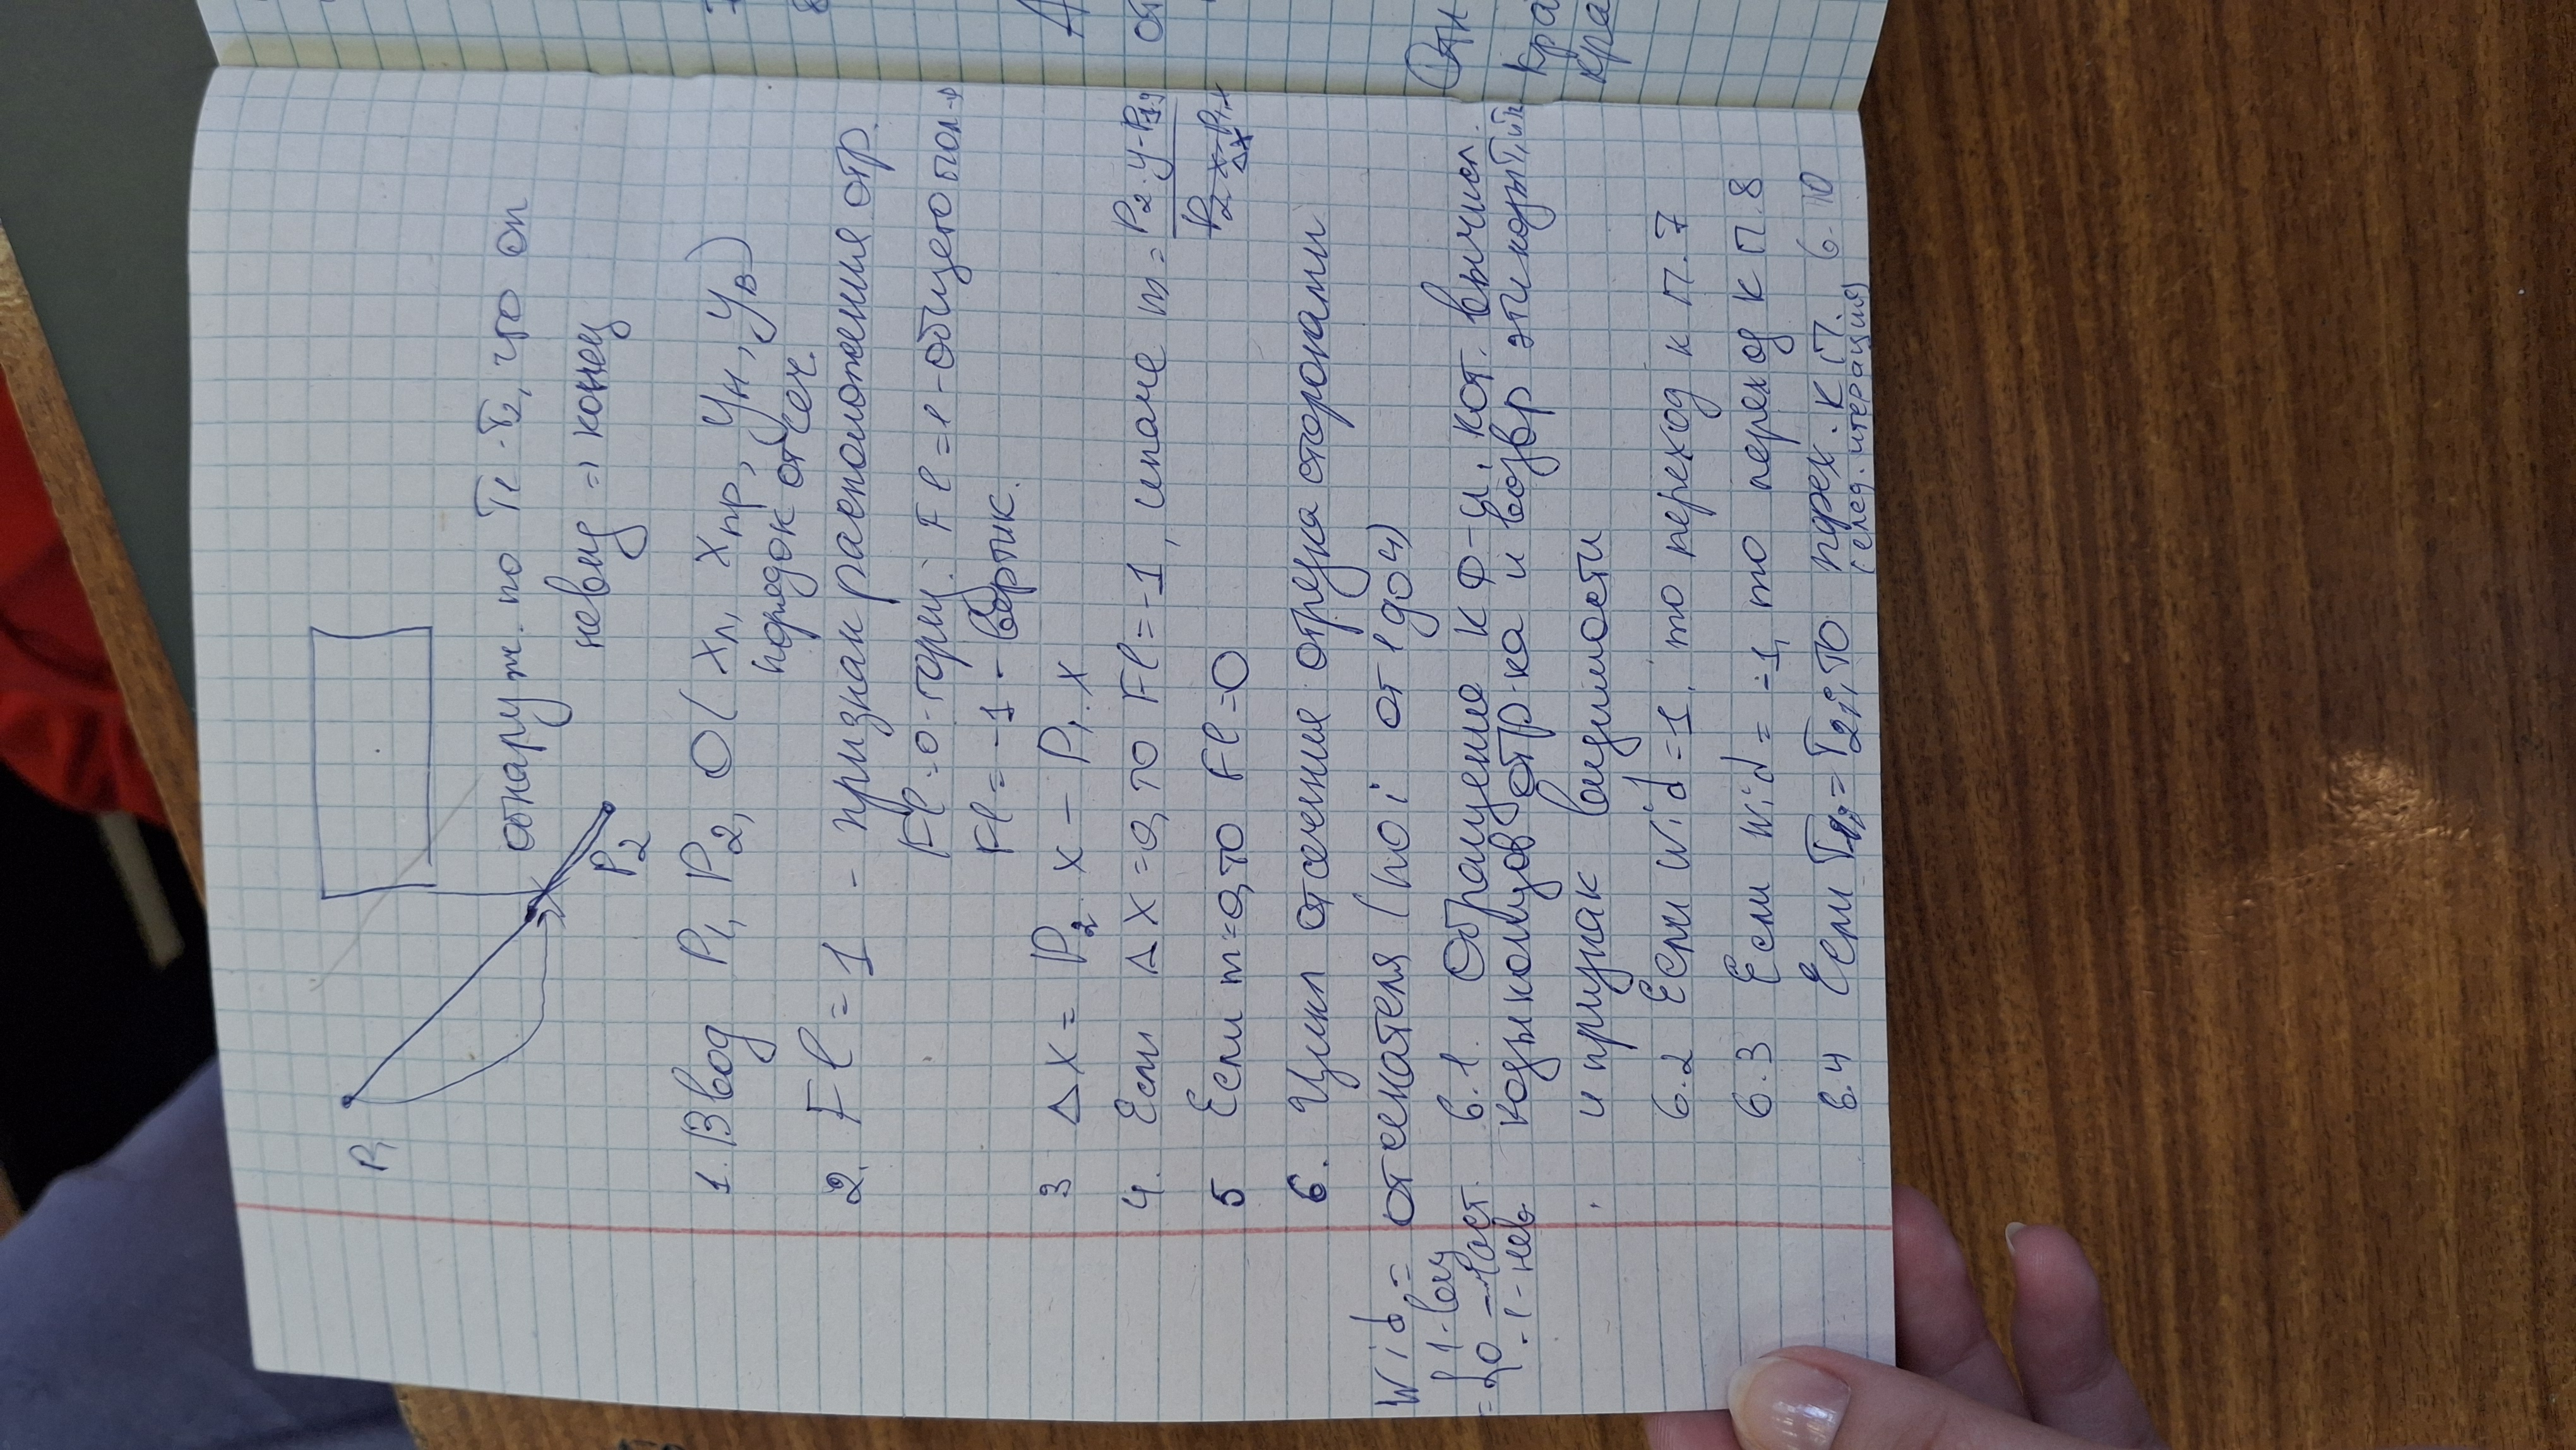 P₁
обнаруж. по T₁ - T₂, что он
невид => конец
P₂
1. Ввод P₁, P₂, O(Xл, Xпр, Yн, Yв)
порядок отсеч.
2. Fl = 1 - признак расположения отр.
Fl=0-гориз. Fl=1-общего пол-я
Fl = -1 - вертик.
3 ΔX = P₂.x - P₁.x
4. Если ΔX=0, то Fl=-1, иначе m = P₂.y-P₁.y
ΔX
5 Если m=0, то Fl=0
6. Цикл отсечения отрезка сторонами
отсекателя (по i от 1 до 4)
Wid =
= { 1-вид
0 - част.
-1-нев
6.1. Обращение к ф-и, кот. вычисл.
коды концов отр-ка и возвр эти коды T₁ и T₂
и признак видимости
6.2 Если Wid=1, то переход к п. 7
6.3 Если Wid = -1, то переход к п. 8
6.4 Если T₁,ᵢ = T₂,ᵢ, то перех. к п. 6.10
(след. итерация)